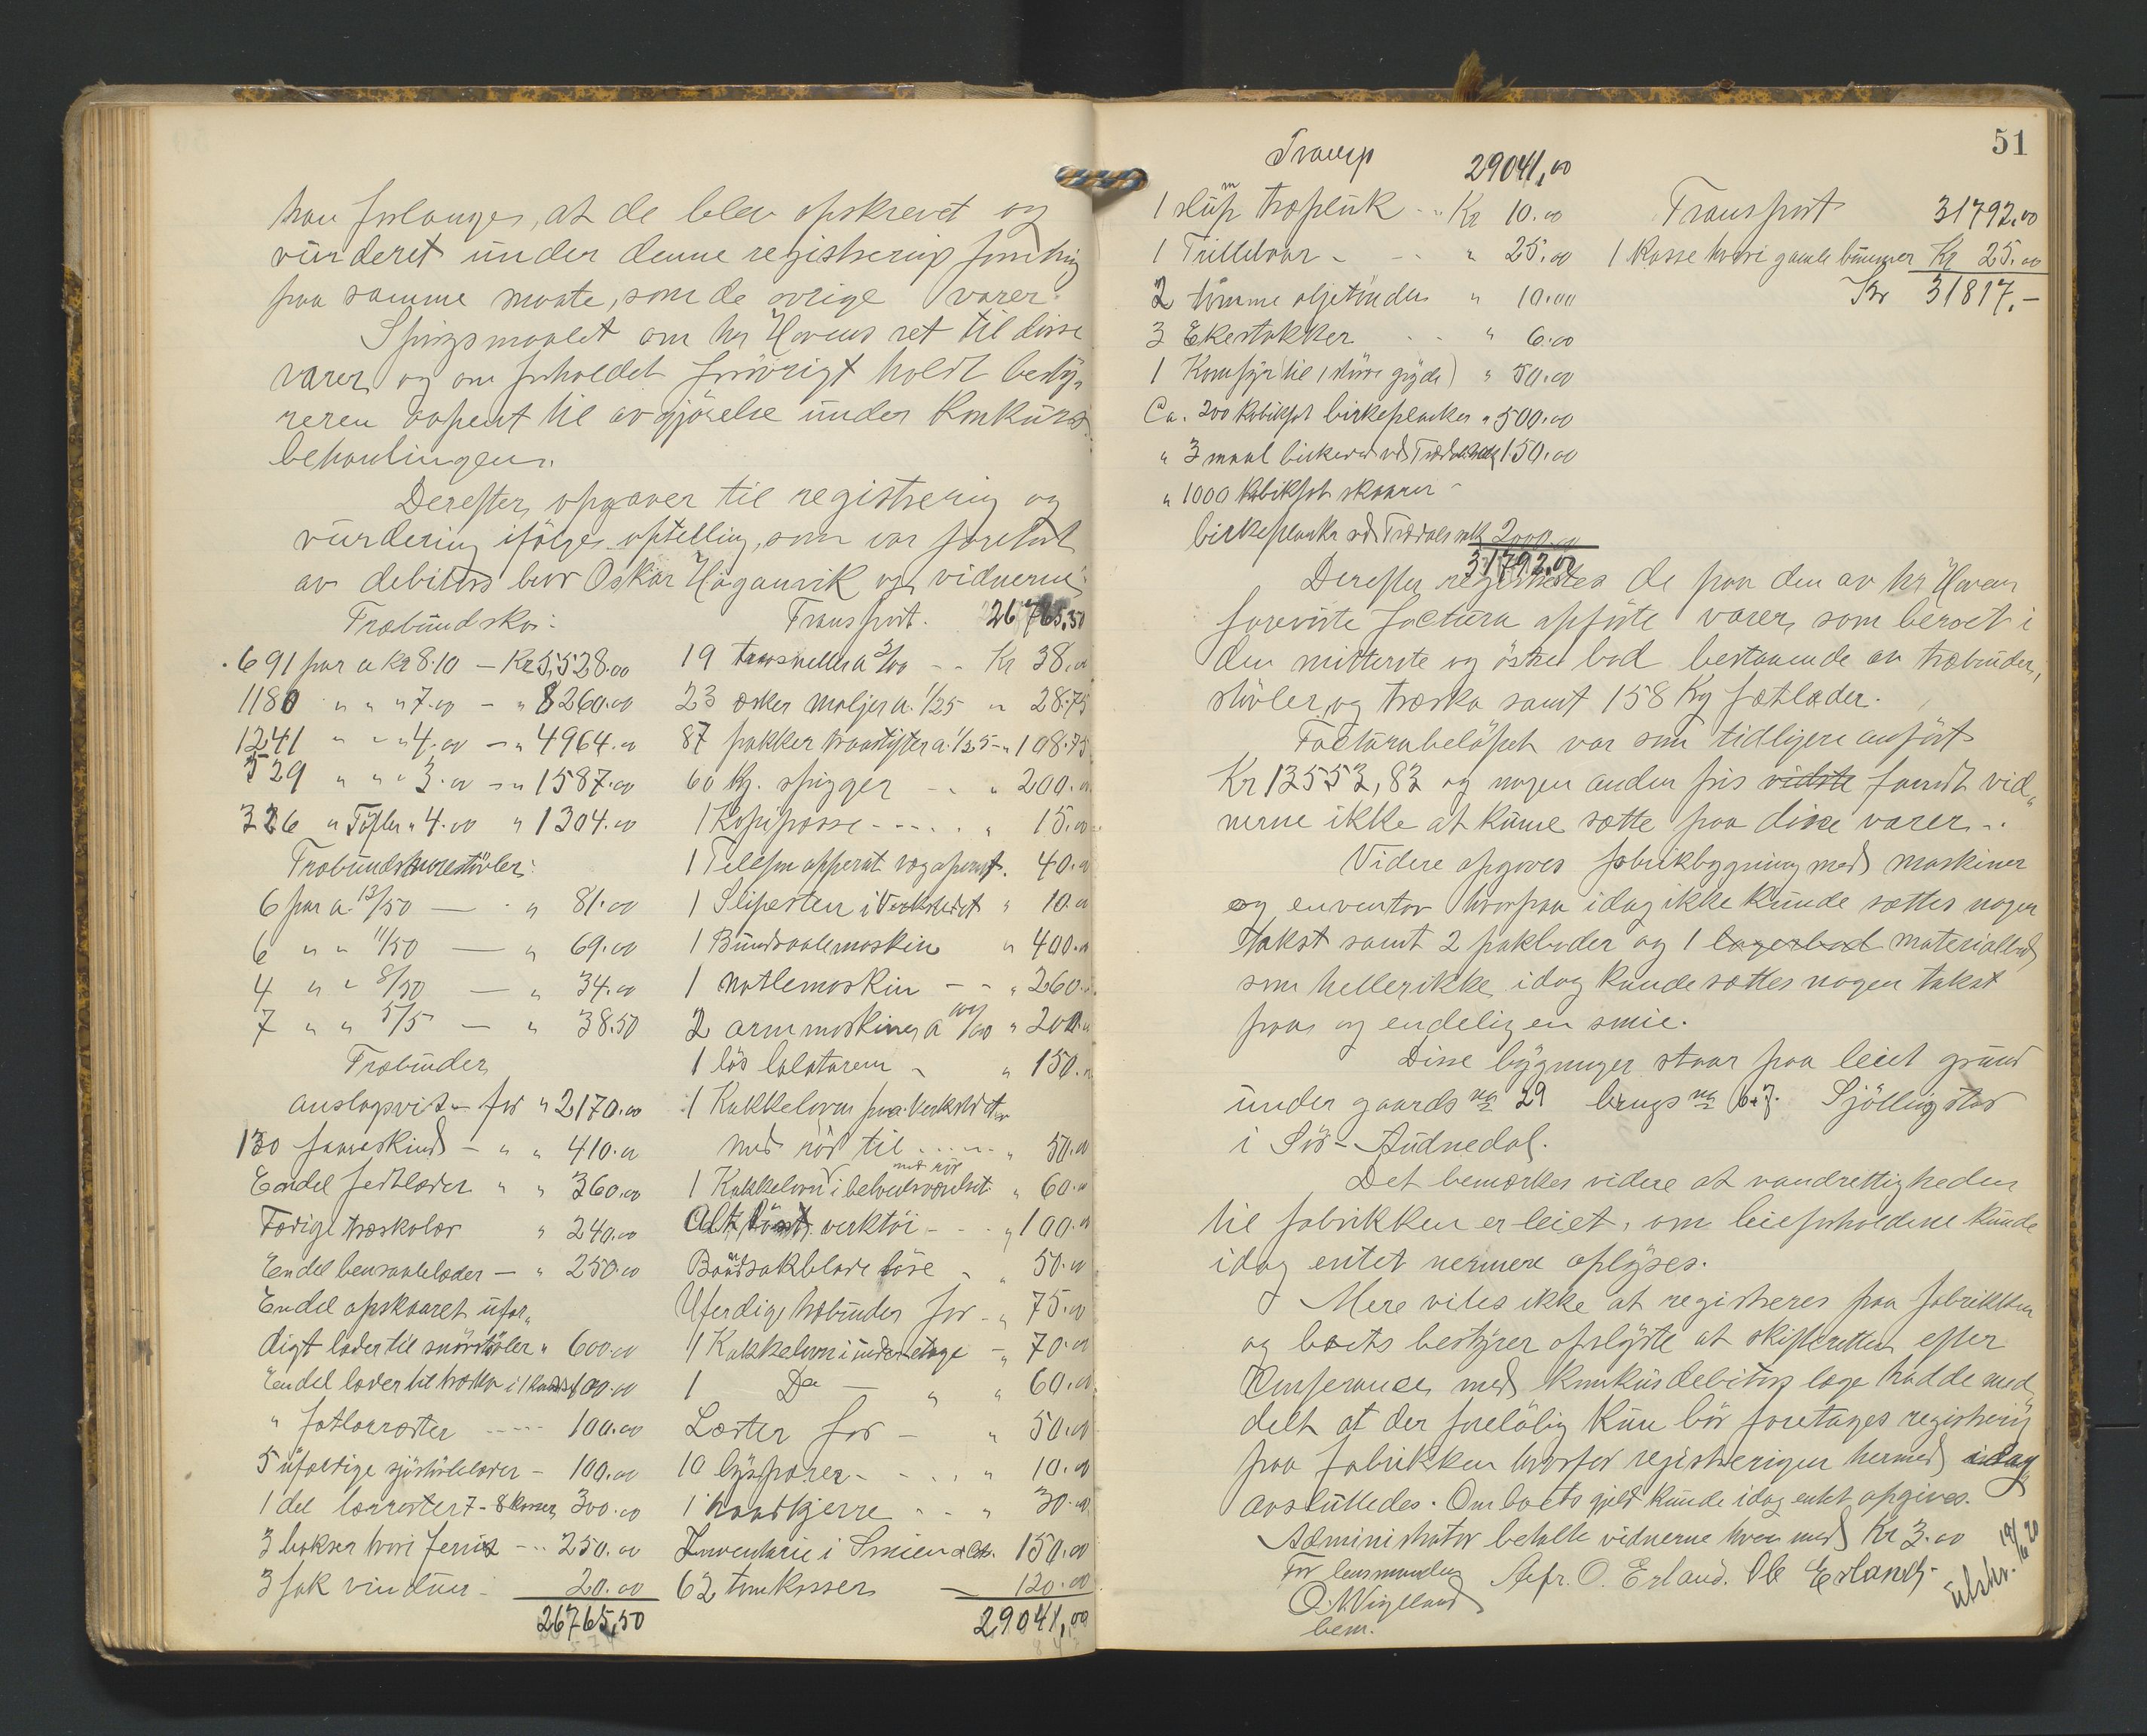 han forlanges, at de blev opskrevet og
vurderet under denne registrering
paa samme maate, som de øvrige varer.
Spørgsmaalet om hr Havens ret til disse
varer og om forholdet forøvrigt holdt besty,
reren aapent til avgjørelse under Konkurs-
behandlingen.
Derefter opgaver til registrering og
vurdering ifølge optelling, som var foretat
av debitors bror Oskar Høgansvik og vidnerne:
Træbundsko:
691 par a Kr 8.10 — Kr 5,528.00
1180 " " " 7.00 - " 8260.00
1241 " " " 4.00 - " 4964.00
529 " " " 3.00 - " 1587.00
326 " Töfler " 4.00 " 1304.00
Træbundsnørestövler:
6 par a 13/50 — " 81.00
6 " " 11/50 — " 69.00
4 " " 8/50 — " 34.00
7 " " 5/5 — " 38.50
Træbunder
anslagsvis for " 2170.00
130 faareskind - " " 410.00
Endel fedtlæder " " 360.00
Færige træskolær " 240.00
Endel bensaalelæder — " 250.00
Endel opskaaret ufær„
digt læder til snørstövler " 600.00
Endel læder til træsko i 1 100.00
" fatlærrester ---- 100.00
5 ufærdige sjöstövlelæder - 100.00
1 del lærrester 7-8 kasser 300.00
3 bokser hvori fernis - " 250.00
3 fak vinduer - 20.00
26765,50
Transport. 26765,50
19 a 2/00 - - Kr 38.00
23 æsker maljer a. 1/25 " 28.75
87 pakker traadstifter a. 1/25 - " 108.75
60 Kg. spigger - - " 200.00
1 Kopipresse - - - - " 15.00
1 Telefon apparat vægapparat. 40.00
1 Slipesten i Verkstedet " 10.00
1 Bundsaalemaskin " 400.00
1 natlemaskin - - " 260.
2 armmaskiner a 100/00 " 200.00
1 lös - " 150.
1 Kakkelovn paa Verkstedet
med rör til - - - - " 50.00
1 Kakkelovn med rör i " 60.00
Alt löst verktöi - - - " 100.00
Baandsakblade löse - " 50.00
Uferdige træbunder for - " 75.00
1 Kakkelovn i underetage - " 70.00
1 Do — " " 60.00
Læster for — " 50.00
10 lyspærer - - . . " 10.00
1 haandkjerre - - " 30.00
Inventarie i Smien 150.00
62 tomkasser — 120.00
29041,00
51
Transp 29041,00
1 slump træpluk - " Kr 10.00
1 Trillebaar - - - " 25.00
2 tömme oljetönder " 10.00
3 Ekestokker - - " 6.00
1 Komfyr (til 1 större gryde) " 50.00
Ca. 200 kubikfot birkeplanker " 500.00
" 3 maal birkeved ved 150.00
" 1000 kubikfot skaarne -
birkeplanker ved 2000.00
31792.00
Transport 31792.00
1 Kasse hvori gamle bunner Kr 25.00
Kr 31817.-
Derefter registrertes de paa den av hr Haven
foreviste factura opförte varer, som beroet i
den mitterste og östre bod bestaaende av træbunder,
stövler og træsko samt 158 Kg fætlæder.
Facturabelöpet var som tidligere anfört
Kr 13553,83 og nogen anden pris vidste fandt vid„
nerne ikke at kunne sætte paa disse varer.
Videre opgaves fabrikbygning med maskiner
og enventar hvorpaa idag ikke kunde sættes nogen
takst samt 2 pakboder og 1 lagerbod materialbod
som heller ikke idag kunde sættes nogen takst
paa og endelig en smie.
Disse bygninger staar paa leiet grund
under gaards no 29 brugs no 6+7. Sjöllingstad
i Sör-Audnedal.
Det bemærkes videre at vandrettigheden
til fabrikken er leiet, om leieforholdene kunde
idag entet nermere oplyses.
Mere vites ikke at registreres paa fabrikken
og boets bestyrer oplyste at skifteretten efter
Conferance med konkursdebitors læge hadde med„
delt at der foreløbig kun bör foretages registrering
paa fabrikken hvorfor registreringen hermed idag
avsluttedes. Om boets gjeld kunde idag entet opgives.
Administrator betalte vidnerne hver med Kr 3.00
For lensmanden Aafr. O. Erland. Ole Erland.
O. M. Vigeland
bem.
utskr. 19/6 20